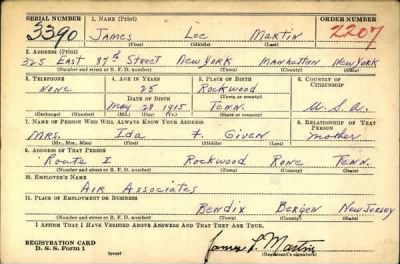 SERIAL NUMBER 1. NAME (Print) ORDER NUMBER
3390 James Lee Martin 2207
(First) (Middle) (Last)
2. ADDRESS (Print)
325 East 87th Street New York Manhattan New York
(Number and street or R. F. D. number) (Town) (County) (State)
3. TELEPHONE 4. AGE IN YEARS 5. PLACE OF BIRTH 6. COUNTRY OF CITIZENSHIP
None 25 Rockwood
DATE OF BIRTH (Town or county)
May 28 1915 Tenn. U.S.A.
(Exchange) (Number) (Mo.) (Day) (Yr.) (State or country)
7. NAME OF PERSON WHO WILL ALWAYS KNOW YOUR ADDRESS 8. RELATIONSHIP OF THAT PERSON
Mrs. Ida F. Given mother
(Mr., Mrs., Miss) (First) (Middle) (Last)
9. ADDRESS OF THAT PERSON
Route 1 Rockwood Rone Tenn.
(Number and street or R. F. D. number) (Town) (County) (State)
10. EMPLOYER'S NAME
Air Associates
11. PLACE OF EMPLOYMENT OR BUSINESS
Bendix Bergen New Jersey
(Number and street or R. F. D. number) (Town) (County) (State)
I AFFIRM THAT I HAVE VERIFIED ABOVE ANSWERS AND THAT THEY ARE TRUE.
REGISTRATION CARD
D. S. S. Form 1 James L. Martin
(over) (Registrant's signature)